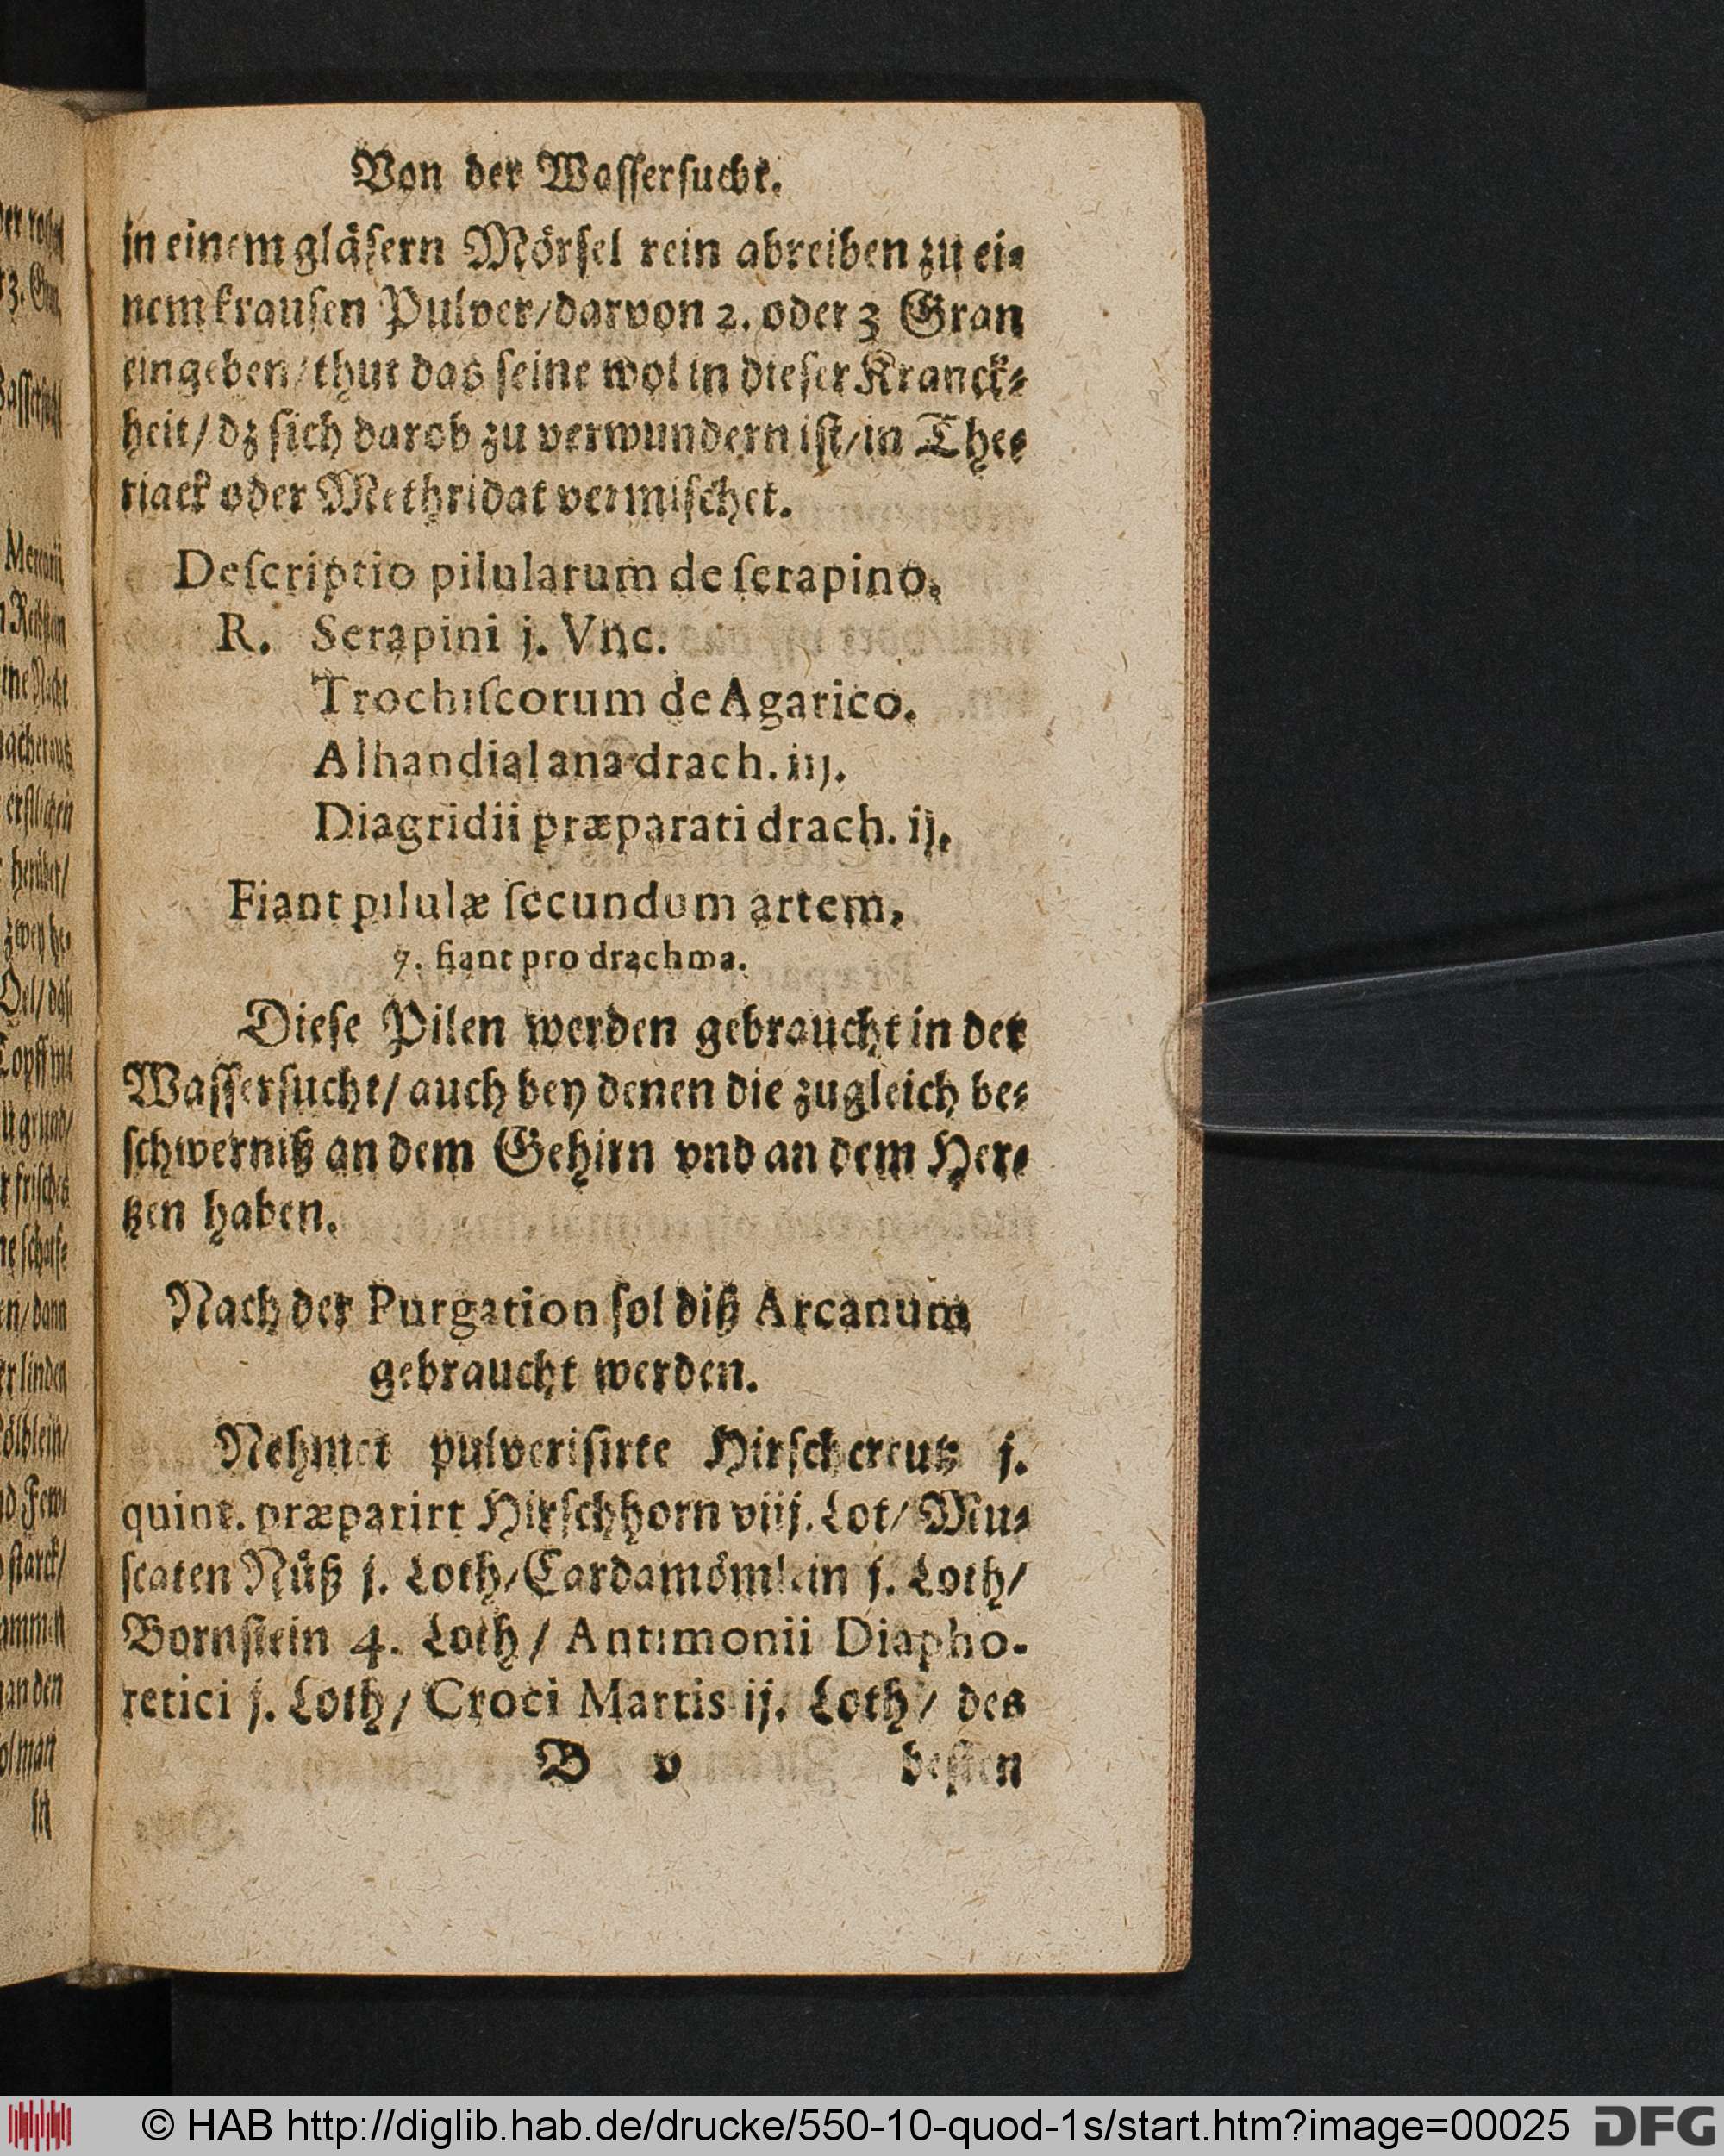 Von der Waſſerſucht.
in einem gläſern Mörſel rein abreiben zu ei⸗
nem krauſen Pulver/darvon 2. oder 3 Gran
eingeben/thut das ſeine wol in dieſer Kranck⸗
heit/dz ſich darob zu verwundern iſt/in The⸗
riack oder Methridat vermiſchet.
Deſcriptio pilularum de ſerapino.
R. Serapini j. Vnc.
Trochiſcorum de Agarico.
Alhandial ana drach. iij.
Diagridii præparati drach. ij.
Fiant pilulæ ſecundum artem,
7. fiant pro drachma.
Dieſe Pilen werden gebraucht in der
Waſſerſucht/ auch bey denen die zugleich be⸗
ſchwerniß an dem Gehirn vnd an dem Her⸗
tzen haben.
Nach der Purgation ſol diß Arcanum
gebraucht werden.
Nehmet pulveriſirte Hirſchcreutz j.
quint. præparirt Hirſchhorn viij. Lot/ Mu⸗
ſcaten Nüß j. Loth/Cardamömlein j. Loth/
Bornſtein 4. Loth/ Antimonii Diapho-
retici j. Loth/ Croci Martis ij. Loth/ des
B v beſten
© HAB http://diglib.hab.de/drucke/550-10-quod-1s/start.htm?image=00025 DFG